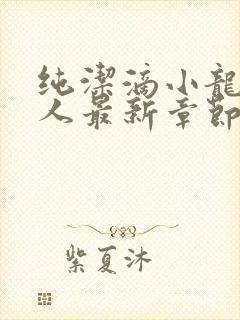 纯潔滴小龍
人最新章節
紫夏沐